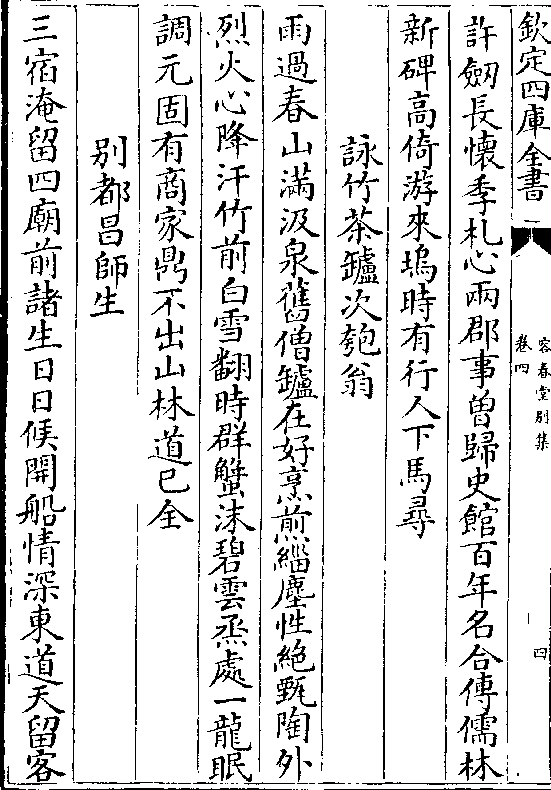 欽定四庫全書
容春堂別集
卷四
四
許劒長懷季札心兩郡事曽歸史館百年名合傳儒林
新碑高倚游來塢時有行人下馬尋
詠竹茶罏次匏翁
雨過春山滿汲泉舊僧罏在好烹煎緇塵性絶甄陶外
烈火心降汗竹前白雪翻時群蟹沫碧雲烝處一龍眠
調元固有商家鼎不出山林道已全
别都昌師生
三宿淹留四廟前諸生日日候開船情深東道天留客